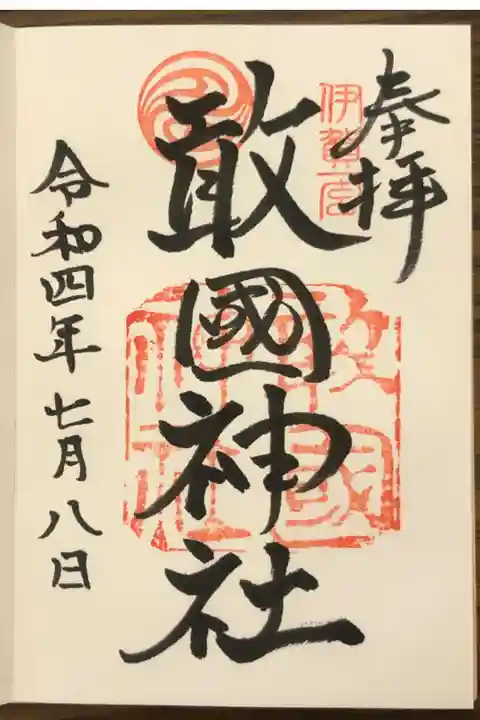 奉拝
伊賀一宮
敢國神社
敢國
神社
令和四年七月八日